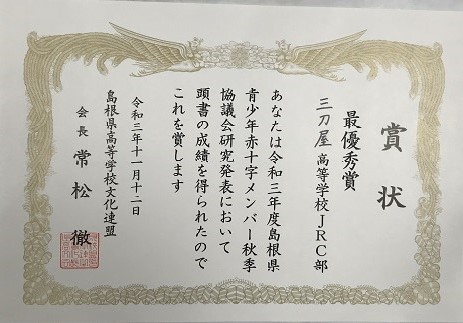 賞状
最優秀賞
三刀屋高等学校JRC部
あなたは令和三年度島根県
青少年赤十字メンバー秋季
協議会研究発表において
頭書の成績を得られたので
これを賞します
令和三年十一月十二日
島根県高等学校文化連盟
会長 常松 徹